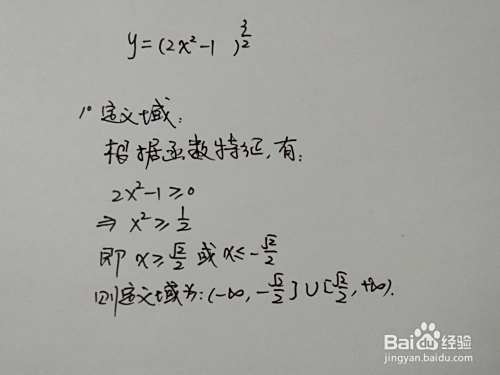 y=(2x²-1)^{3/2}
1° 定义域:
根据函数特征,有:
2x²-1≥0
⇒ x²≥1/2
即 x≥√2/2 或 x≤-√2/2
则定义域为:(-∞,-√2/2]∪[√2/2,+∞).
Baidu经验
jingyan.baidu.com